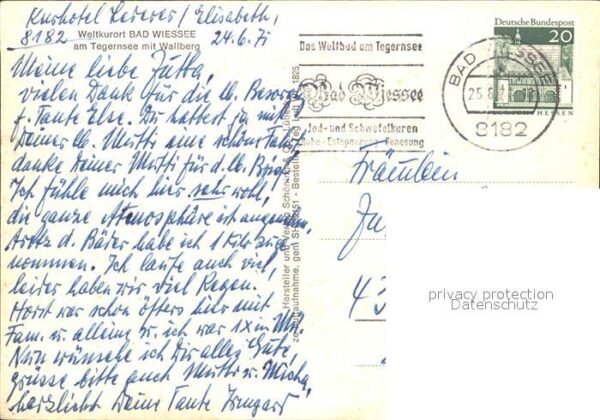 Kurhotel Lederer / Elisabeth,
8182
Weltkurort BAD WIESSEE
am Tegernsee mit Wallberg
24.6.71
Meine liebe Jutta,
vielen Dank für die lb. Besorg.
f. Tante Else. Du hattest ja mit
Deiner lb. Mutti eine schöne Fahrt
danke Deiner Mutti für d. lb. Brief
Ich fühle mich hier sehr wohl,
die ganze Atmosphäre ist angenehm,
trotz d. Bäder habe ich 1 Kilo zuge
nommen. Ich laufe auch viel,
leider haben wir viel Regen.
Horst war schon öfters hier mit
Fam. u. allein u. ich war 1x in Mü.
Nun wünsche ich Dir alles Gute,
grüsse bitte auch Mutti u. Micha,
herzlichst Deine Tante Irmgard
Das Weltbad am Tegernsee
Bad Wiessee
Jod- und Schwefelkuren
Ruhe - Entspannung - Genesung
BAD WIESSEE
25.6
8182
Deutsche Bundespost
20
HESSEN
Hersteller und Verlag
Fräulein
Ju
43
privacy protection
Datenschutz